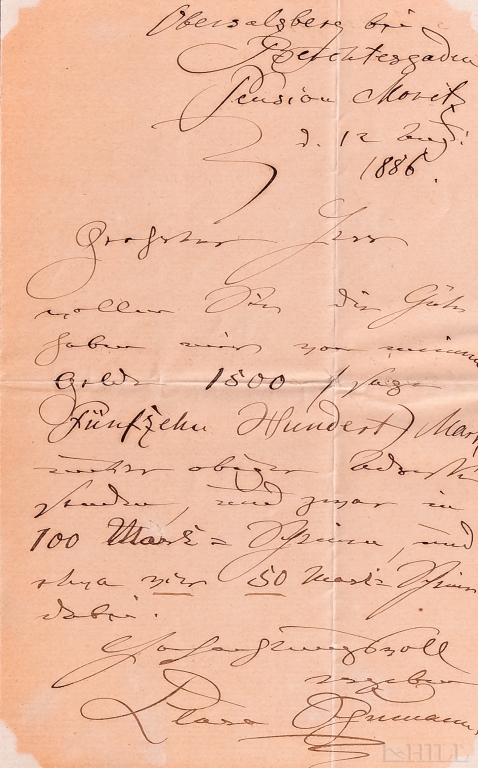 Obersalzberg bei
Berchtesgaden
Pension Moritz
d. 12 Aug.
1886.
Geehrter Herr
wollen Sie die Güte
haben mir von meinem
Gelde 1500 (sage
Fünfzehn Hundert) Mark
unter obiger Adresse
senden, und zwar in
100 Mark = Scheinen, und
etwa vier 50 Mark = Scheine
dabei.
Hochachtungsvoll
ergeben
Clara Schumann.
HILL